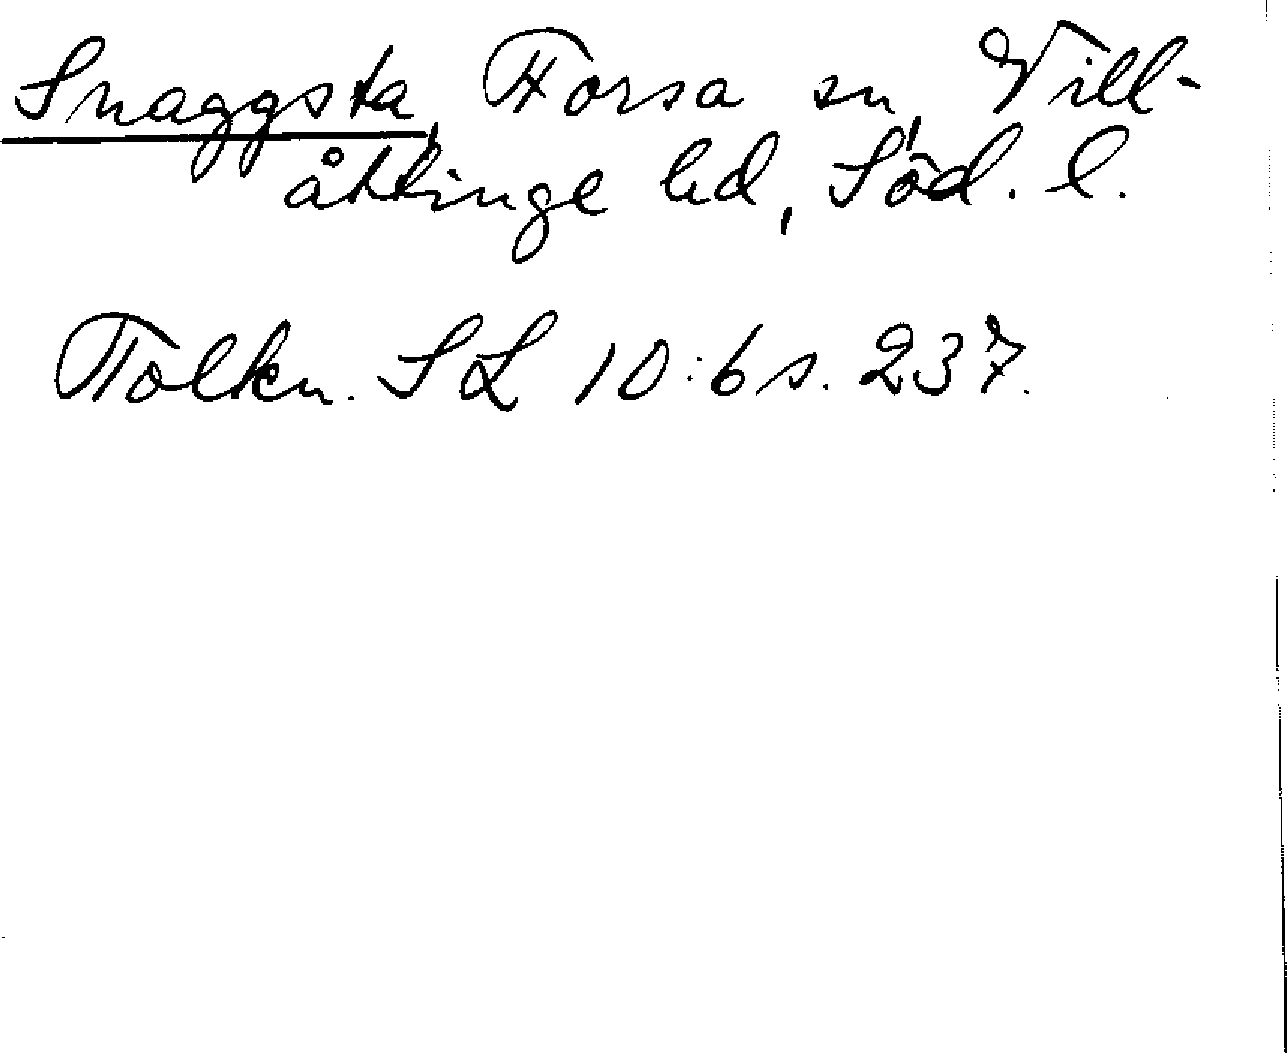 Snaggsta, Forsa sn, Vill-
åttinge hd, Söd. l.
Tolkn. SL 10:6 s. 237.